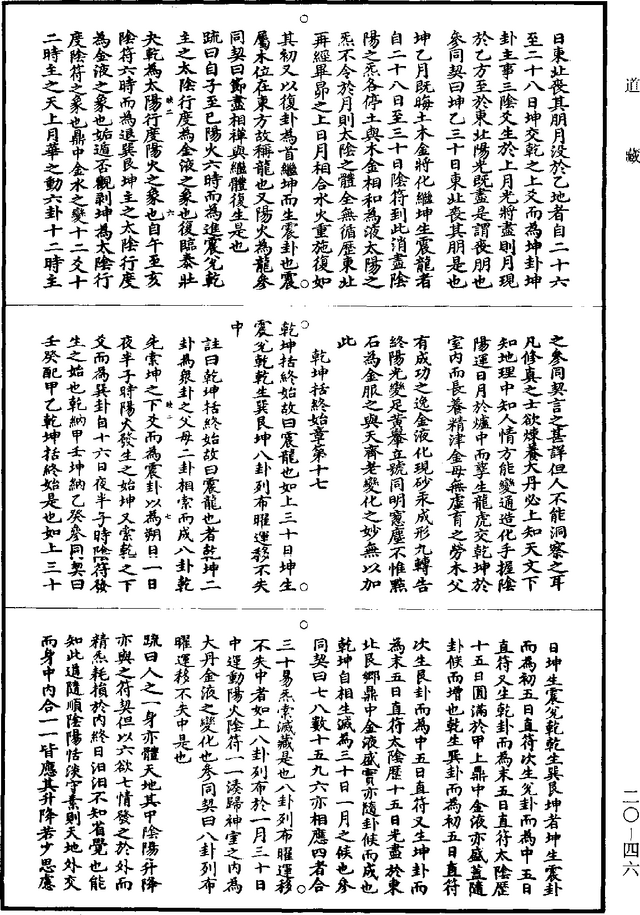 道藏
日東北喪其朋月沒於乙地者自二十六
至二十八日坤交乾之上爻而為坤卦坤
卦主事三陰爻生於上月光將盡則月現
於乙方至於東北陽光既盡是謂喪朋也
參同契曰坤乙三十日東北喪其朋是也
坤乙月既晦土木金將化繼坤生震龍者
自二十八日至三十日陰符到此消盡陰
陽之炁各停土與木金相和為液太陽之
炁不令於月則太陰之體全無循歷東北
再經畢昴之上日月相合水火重施復如
其初又以復卦為首繼坤而生震卦也震
屬木位在東方故稱龍也又陽火為龍參
同契曰節盡相禪與繼體復生是也
疏曰自子至巳陽火六時而為進震兌乾
主之太陰行度為金液之象也復臨泰壯
夬乾為太陽行度陽火之象也自午至亥
陰符六時而為退巽艮坤主之太陰行度
為金液之象也姤遁否觀剥坤為太陰行
度陰符之象也鼎中金水之變十二爻十
二時主之天上月華之動六卦十二時主
之參同契言之甚詳但人不能洞察之耳
凡修真之士欲煉養大丹必上知天文下
知地理中知人情方能變通造化手握陰
陽運日月於爐中而孳生龍虎交乾坤於
室內而長養精津金母無虛育之勞木父
有成功之逸金液化現砂汞成形九轉告
終陽光變足黃轝立號同明窻塵不惟點
石為金服之與天齊老變化之妙無以加
此
乾坤括終始章第十七
乾坤括終始故曰震龍也如上三十日坤生
震兌乾乾生巽艮坤八卦列布曜運移不失
中
註曰乾坤括終始故曰震龍也者乾坤二
卦為衆卦之父母二卦相索而成八卦乾
先索坤之下爻而為震卦以為朔日一日
夜半子時陽火發生之始坤又索乾之下
爻而為巽卦自十六日夜半子時陰符發
生之始也乾納甲壬坤納乙癸參同契曰
壬癸配甲乙乾坤括終始是也如上三十
日坤生震兌乾乾生巽艮坤者坤生震卦
而為初五日直符次生兌卦而為中五日
直符又生乾卦而為末五日直符太陰歷
十五日圓滿於甲上鼎中金液亦盛蓋隨
卦候而增也乾生巽卦而為初五日直符
次生艮卦而為中五日直符又生坤卦而
為末五日直符太陰歷十五日光盡於東
北艮鄉鼎中金液盛實亦隨卦候而成也
乾坤自相生滅為三十日一月之候也參
同契曰七八數十五九六亦相應四者合
三十易炁索滅藏是也八卦列布曜運移
不失中者如上八卦列布於一月三十日
中運動陽火陰符一一湊歸神室之內為
大丹金液之變化也參同契曰八卦列布
曜運移不失中是也
疏曰人之一身亦體天地其甲陰陽升降
亦與之符契但以六欲七情發之於外而
精炁耗損於內終日汩汩不知省覺也能
知此道隨順陰陽恬淡守素則天地外交
而身中內合一一皆應其升降若少思慮
二〇-四六